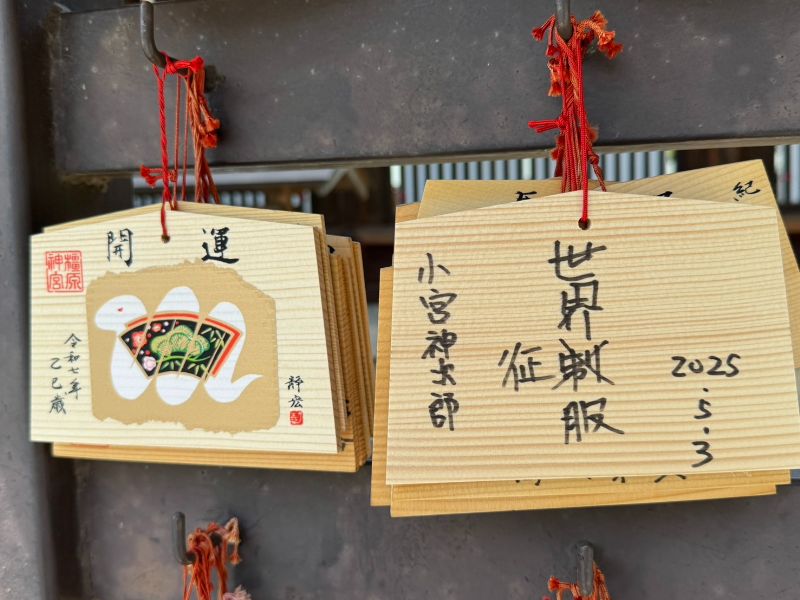 開運
橿原
神宮
令和七年
乙巳歳
静宏
紀
世界制服
征
小宮神太郎
2025
.5.3